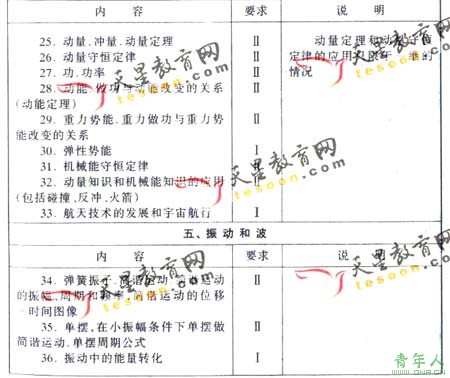 内 容 要求 说 明
25. 动量.冲量.动量定理 Ⅱ 动量定理和动
26. 动量守恒定律 Ⅱ 定律的应用
27. 功.功率 Ⅱ 情况
28. 动能.做功与动能改变的关系 Ⅱ
(动能定理)
29. 重力势能.重力做功与重力势 Ⅱ
能改变的关系
30. 弹性势能 Ⅰ
31. 机械能守恒定律
32. 动量知识和机械能知识的应用 Ⅱ
(包括碰撞.反冲.火箭)
33. 航天技术的发展和宇宙航行 Ⅰ
五、振动和波
内 容 要求 说
34. 弹簧振子. Ⅱ
的振幅、周期和频率.简谐运动的位移
-时间图像
35. 单摆,在小振幅条件下单摆做 Ⅱ
简谐运动.单摆周期公式
36. 振动中的能量转化 Ⅰ
天星教育网
tesoon.com
天星教育网
tesoon.com
天星教育网
tesoon.com
天星教育网
tesoon.com
天星教育网
tesoon.com
青年人